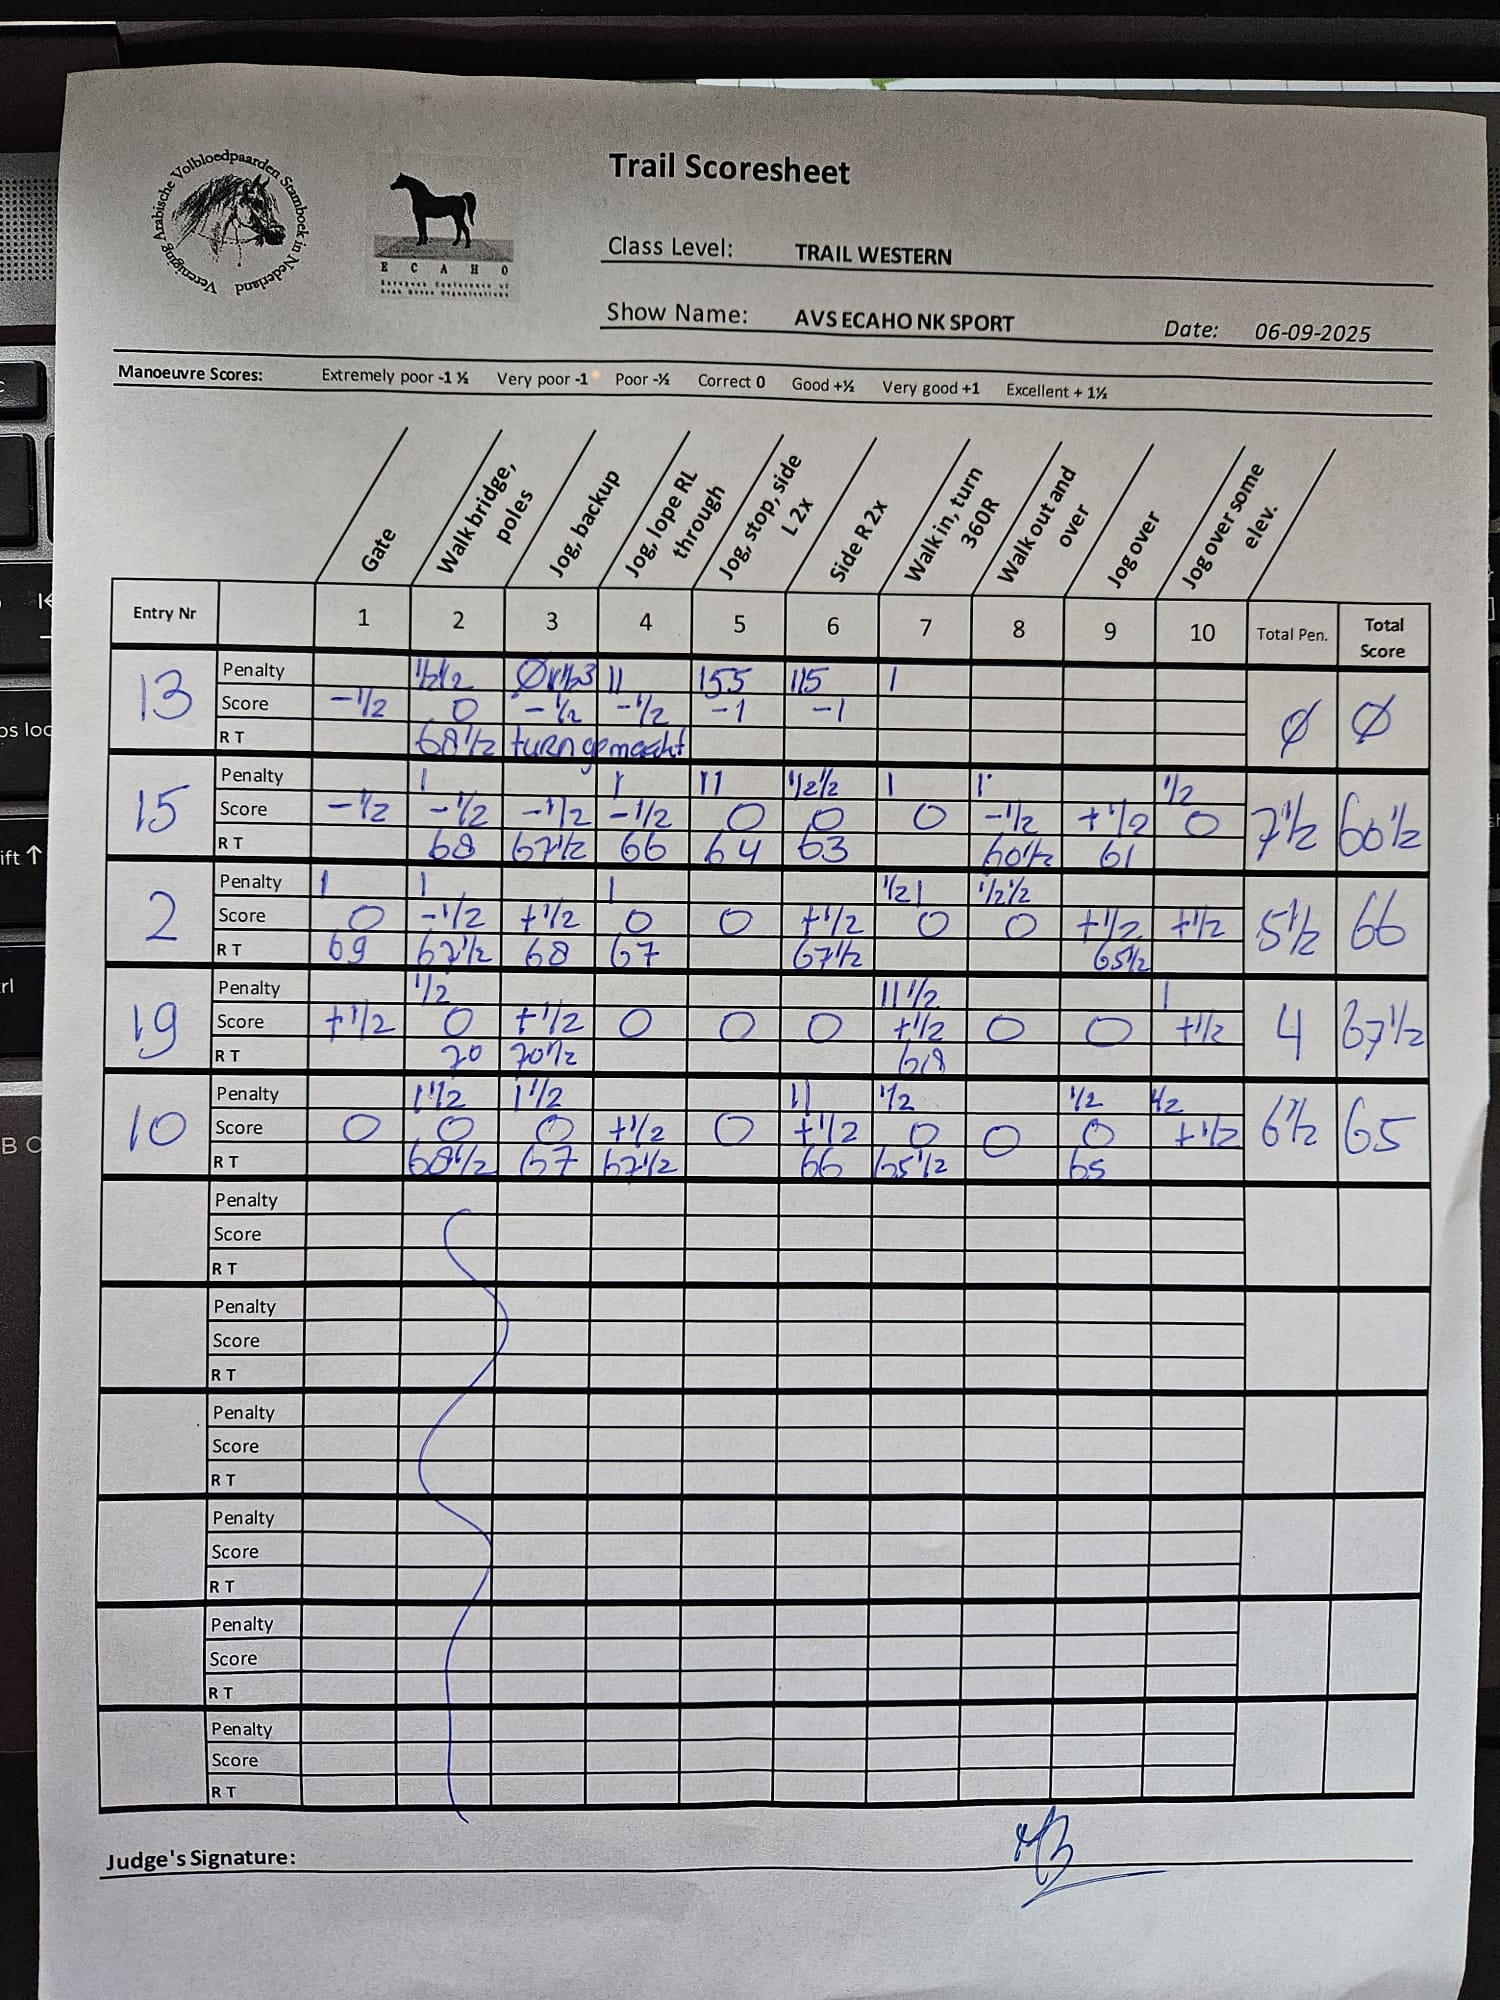 Vereniging Arabische Volbloedpaarden Stamboek in Nederland
E C A H O
European Conference of
Arab Horse Organisations
Trail Scoresheet
Class Level: TRAIL WESTERN
Show Name: AVS ECAHO NK SPORT Date: 06-09-2025
Manoeuvre Scores: Extremely poor -1 ½ Very poor -1 Poor -½ Correct 0 Good +½ Very good +1 Excellent + 1½
Gate
Walk bridge, poles
Jog, backup
Jog, lope RL through
Jog, stop, side L 2x
Side R 2x
Walk in, turn 360R
Walk out and over
Jog over
Jog over some elev.
Entry Nr 1 2 3 4 5 6 7 8 9 10 Total Pen. Total Score
13 Ø Ø
Penalty ½½ 11 155 115 1
Score -½ 0 -½ -½ -1 -1
R T 68½ turn gemacht
15 7½ 60½
Penalty 1 1 11 ½½ 1 1 ½
Score -½ -½ -½ -½ 0 0 0 -½ +½ 0
R T 68 67½ 66 64 63 60½ 61
2 5½ 66
Penalty 1 1 1 ½1 ½½
Score 0 -½ +½ 0 0 +½ 0 0 +½ +½
R T 69 67½ 68 67 67½ 65½
19 4 67½
Penalty ½ 11½ 1
Score +½ 0 +½ 0 0 0 +½ 0 0 +½
R T 70 70½ 68
10 6½ 65
Penalty 1½ 1½ 11 ½ ½ ½
Score 0 0 0 +½ 0 +½ 0 0 0 +½
R T 68½ 67 67½ 66 65½ 65
Penalty
Score
R T
Penalty
Score
R T
Penalty
Score
R T
Penalty
Score
R T
Penalty
Score
R T
Penalty
Score
R T
Judge's Signature: